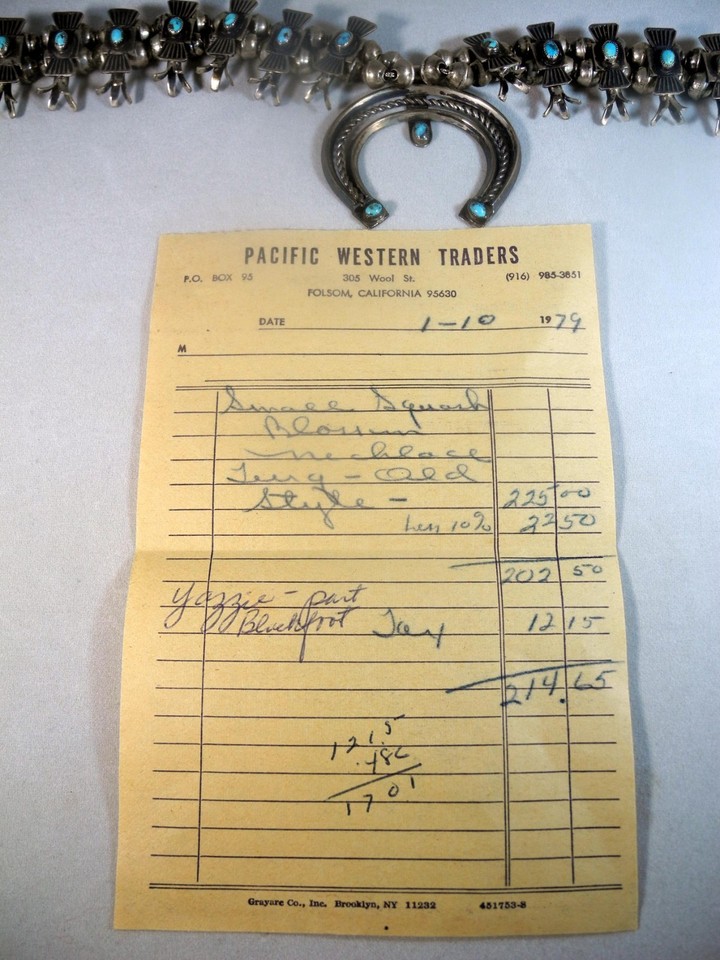 PACIFIC WESTERN TRADERS
P.O. BOX 95 305 Wool St. (916) 985-3851
FOLSOM, CALIFORNIA 95630
DATE 1-10 1979
M
Small Squash
Blossom
Necklace
Turq - Old
Style - 225 00
Less 10% 22 50
202 50
Yazzie - part
Blackfoot Tax 12 15
214.65
121.5
1701
Grayarc Co., Inc. Brooklyn, NY 11232 451753-8